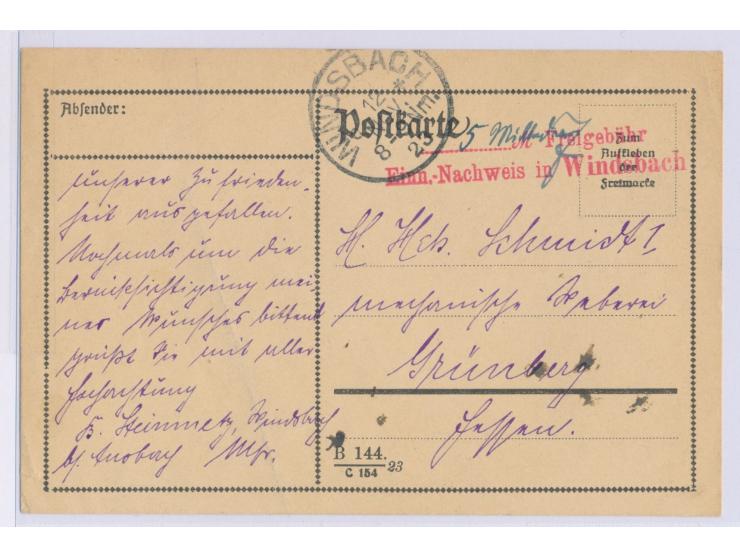 Absender:
WINDSBACH
12 *
IV
8-9 NE.
23
Postkarte
5 Milld
M Freigebühr
Einn.-Nachweis in Windsbach
Zum
Aufkleben
der
Freimarke
unserer Zufrieden-
heit ausgefallen.
Nochmals um die
Berücksichtigung mei-
nes Wunsches bittend
grüßt Sie mit aller
Hochachtung
B. Steinmetz, Windsbach
b/. Ansbach Mfr.
H. Hch. Schmidt I
mechanische Weberei
Grünberg
Hessen.
B 144.
C 154 23